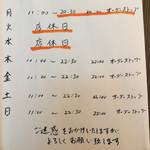 月 11:00 〜 20:30 20:00 オーダーストップ
火 店休日
水 店休日
木 11:00 〜 22:30 22:00 オーダーストップ
金 11:00 〜 22:30 22:00 オーダーストップ
土 11:00 〜 22:30 22:00 オーダーストップ
日 11:00 〜 22:30 22:00 オーダーストップ
ご迷惑をおかけいたしますが
よろしくお願い致します